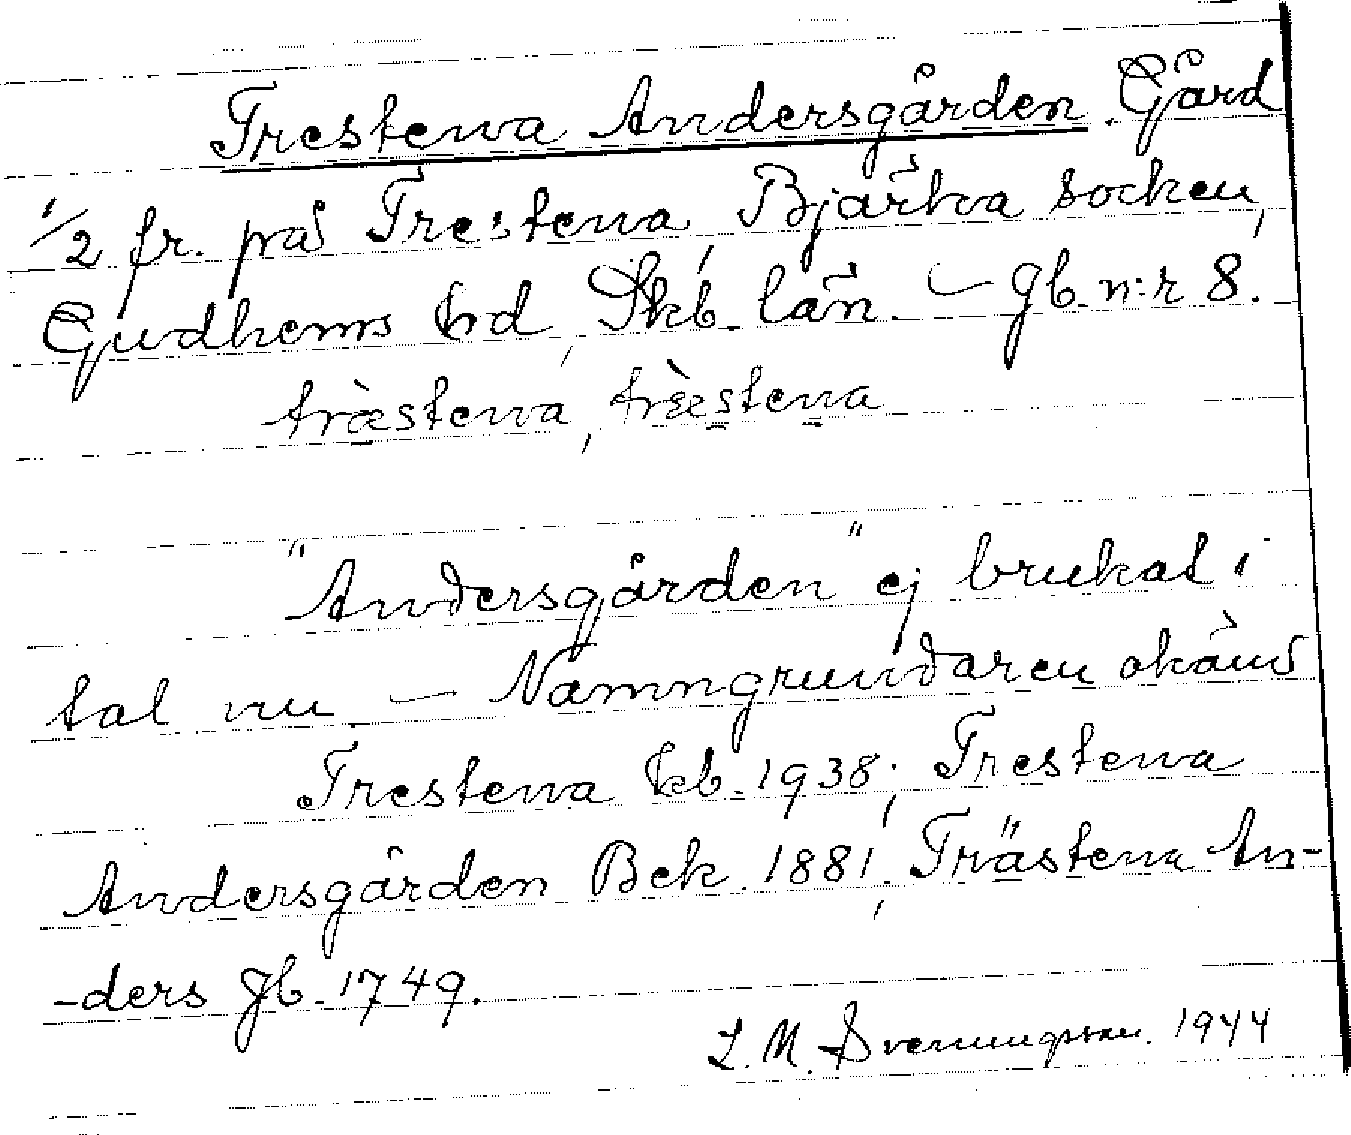 Trestena Andersgården. Gård
1/2 fr. på Trestena, Bjärka socken,
Gudhems hd, Skb. län. — Jb. n:r 8.
træ̀stena, træ̀stena
"Andersgården" ej brukat i
tal nu. — Namngrundaren okänd
Trestena kb. 1938; Trestena
Andersgården Bek. 1881; Trästena An-
-ders Jb. 1749.
L. M. Svenungsson. 1944